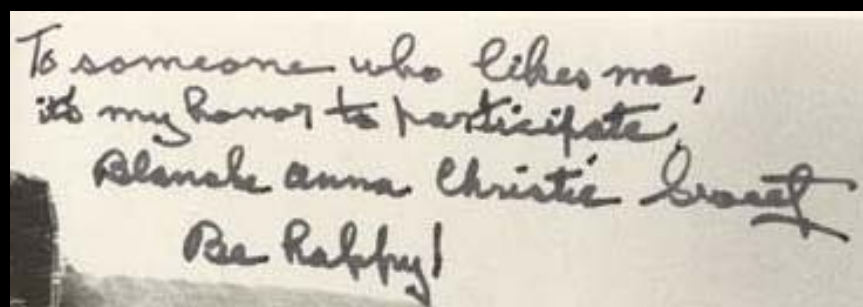 To someone who likes me,
it's my honor to participate,
Blanche Anna Christie
Be happy!